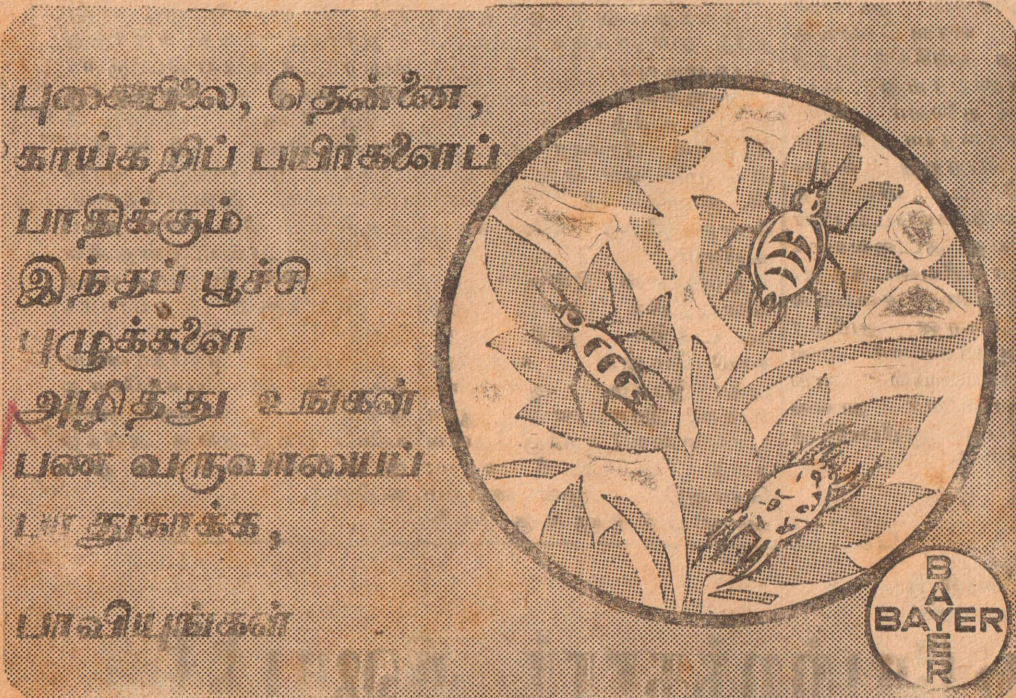 புகையிலை, தென்னை,
காய்கறிப் பயிர்களைப்
பாதிக்கும்
இந்தப் பூச்சி
புழுக்களை
அழித்து உங்கள்
பண வருவாயைப்
பாதுகாக்க,
பாவியுங்கள்
BAYER
BAYER